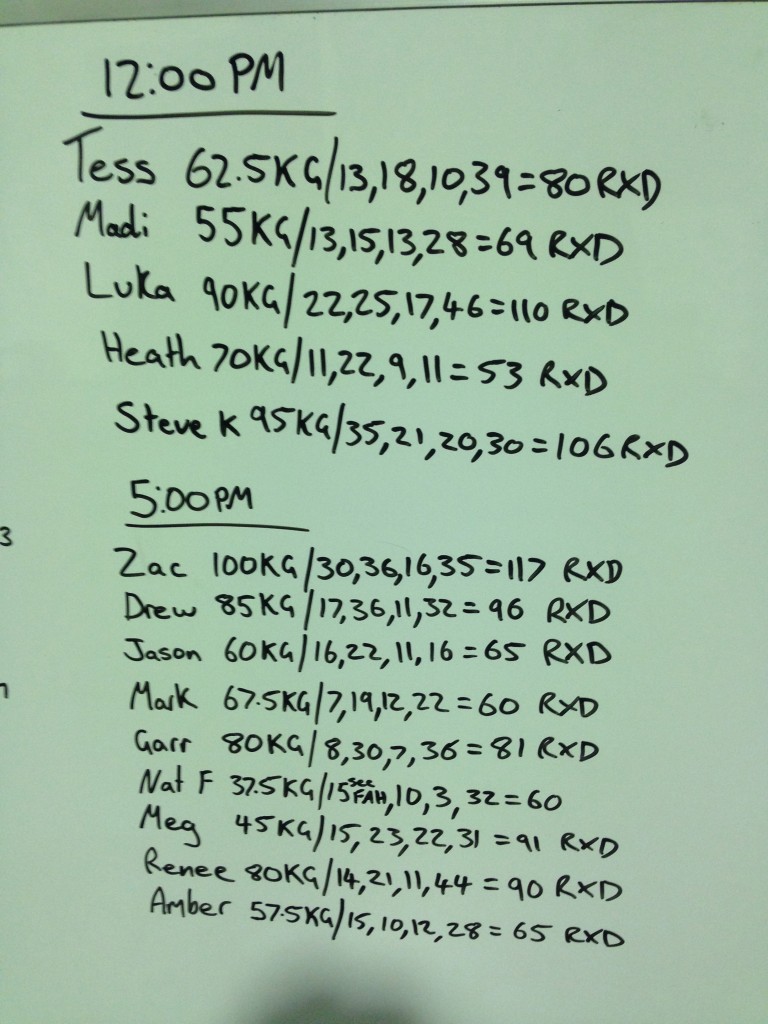 12:00 PM
Tess 62.5KG/13,18,10,39=80 RXD
Madi 55KG/13,15,13,28=69 RXD
Luka 90KG/22,25,17,46=110 RXD
Heath 70KG/11,22,9,11=53 RXD
Steve K 95KG/35,21,20,30=106 RXD
5:00PM
3
Zac 100KG/30,36,16,35=117 RXD
Drew 85KG/17,36,11,32=96 RXD
Jason 60KG/16,22,11,16=65 RXD
Mark 67.5KG/7,19,12,22=60 RXD
Garr 80KG/8,30,7,36=81 RXD
Nat F 37.5KG/15 see FAH,10,3,32=60
Meg 45KG/15,23,22,31=91 RXD
Renee 80KG/14,21,11,44=90 RXD
Amber 57.5KG/15,10,12,28=65 RXD